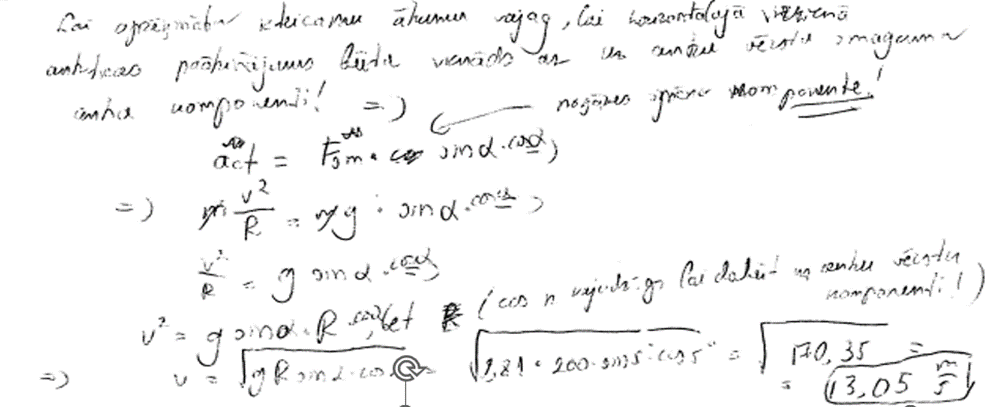 Lai aprēķinātu ātrumu vajag, lai horizontālajā virzienā
paātrinājums būtu vienāds ar uz centru vērstu smaguma
komponenti! =>
nogāzes spēka komponente!
act = Fsm · sinα · cosα)
=> m v²/R = mg · sinα · cosα)
v²/R = g sinα · cosα
v² = g sinα · R cosα, bet (cos n vajadzīgs lai dabūt uz centru vērstu komponenti!)
=> v = √gR sinα · cos √9,81 · 200 · sin5° · cos5° = √170,35 =
= 13,05 m/s